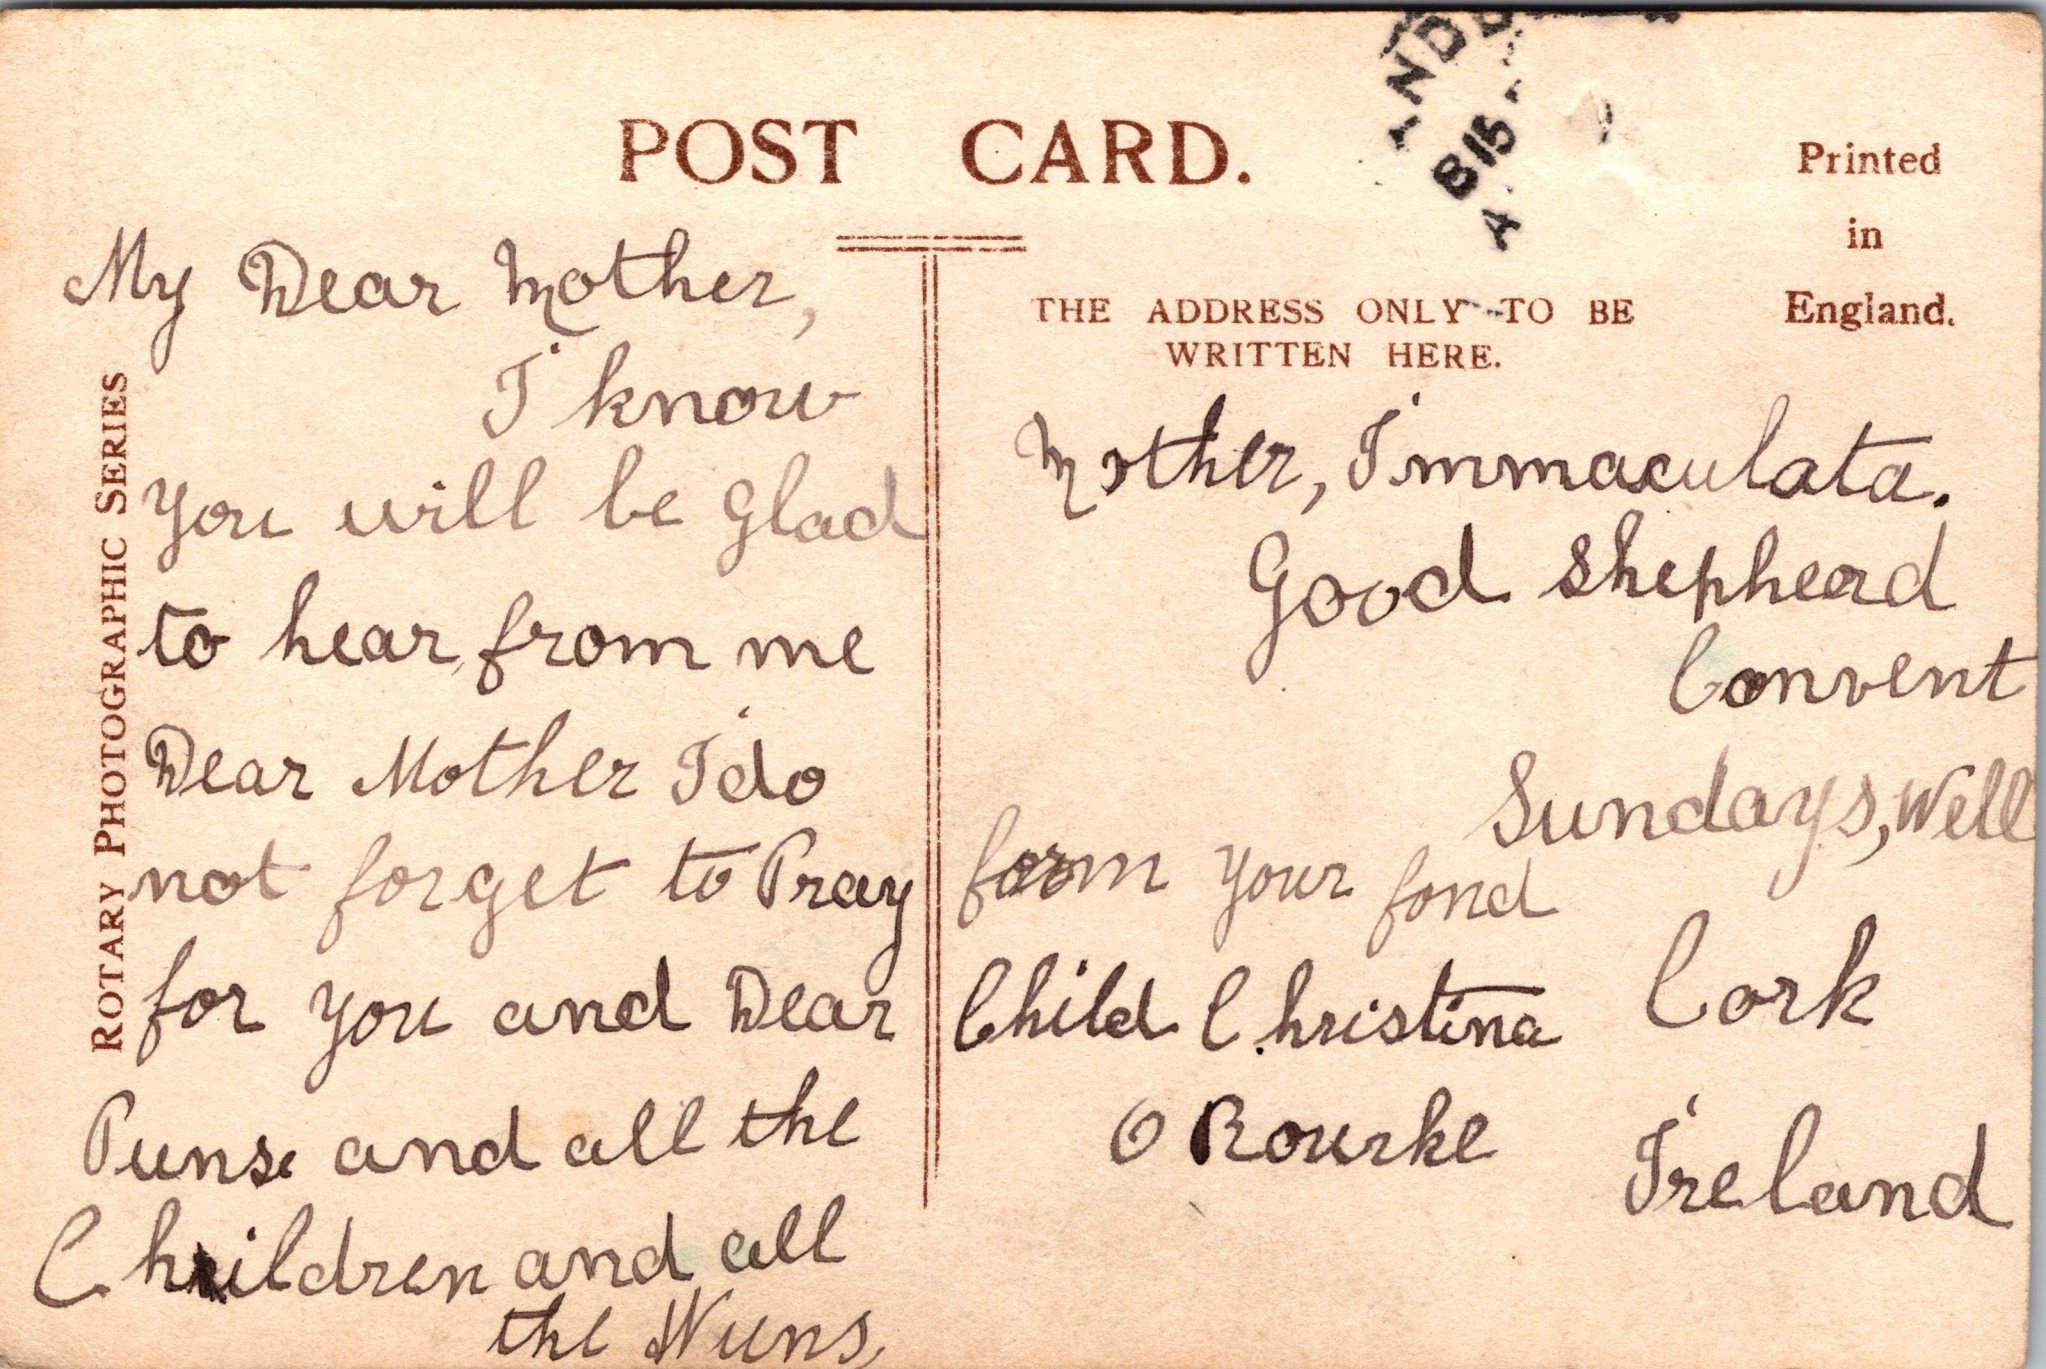 POST CARD.
Printed
in
England.
THE ADDRESS ONLY TO BE
WRITTEN HERE.
ROTARY PHOTOGRAPHIC SERIES
815
A
My Dear Mother,
I know
you will be glad
to hear from me
Dear Mother I do
not forget to Pray
for you and Dear
Puns and all the
Children and all
the Nuns,
form your fond
Child Christina
O Rourke
Mother, Immaculata.
Good Shepherd
Convent
Sundays, Well
Cork
Ireland